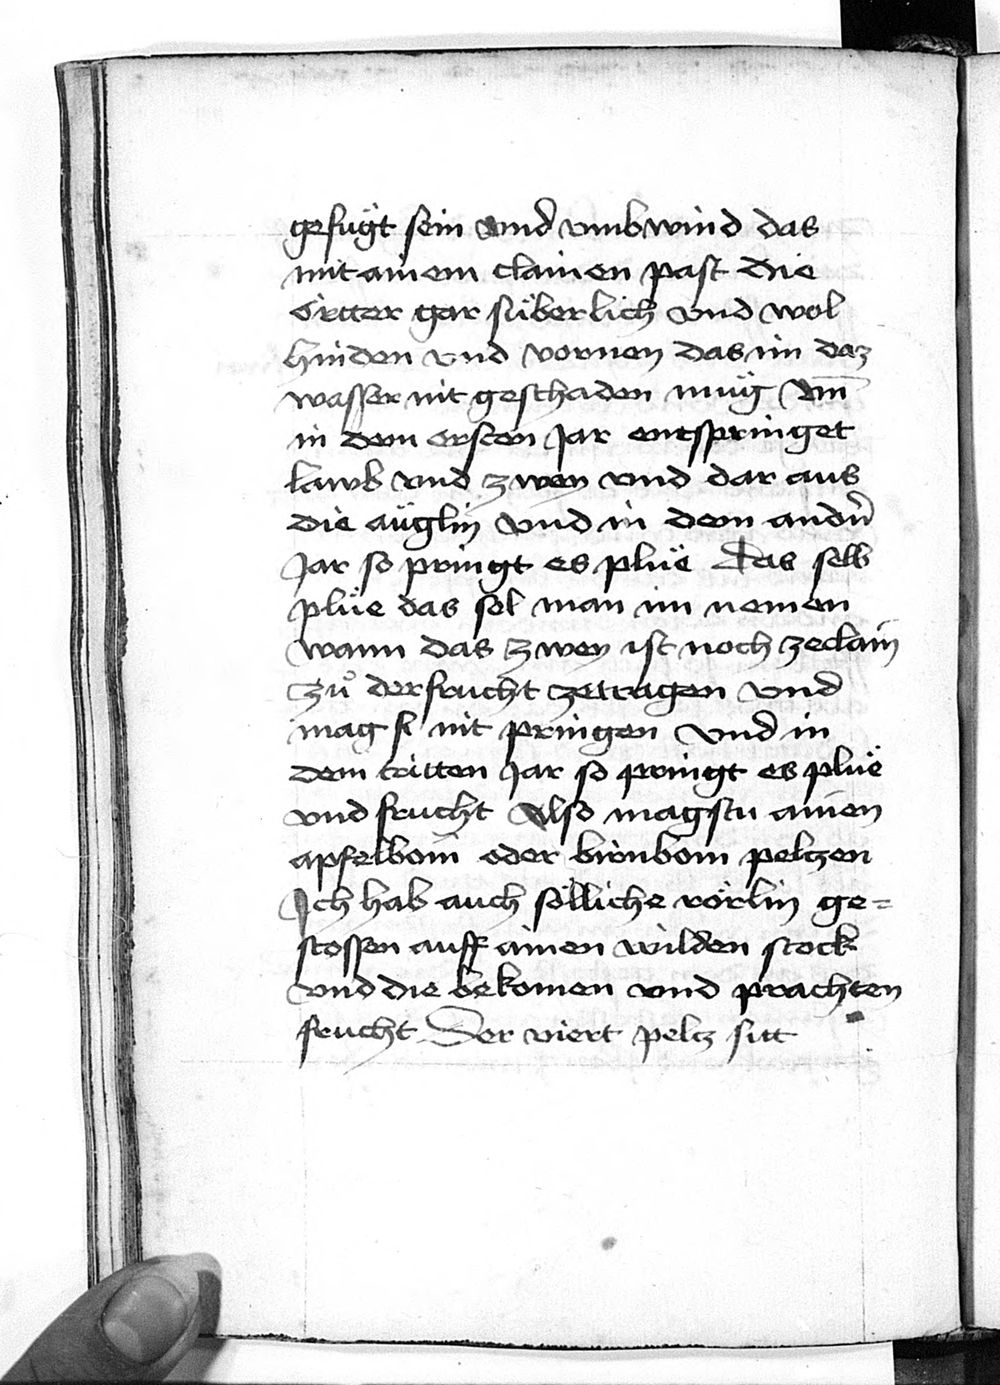 gefügt sein vnd vmbwind das
mit ainem clainen past die
örtter gar süberlich vnd wol
hinden vnd vornen das im daz
wasser nit geschaden müg Vnd
in dem ersten Jar entspringet
lawb vnd zwey vnd dar aus
die äuglin vnd in dem andn̄
Jar so pringt es plüe das selb
plüe das sol man im nemen
wann das zwey ist noch zeclain
zů der frucht zetragen vnd
mag si nit pringen vnd in
dem tritten Jar so pringt es plüe
vnd frucht Also magstu ainen
apfelbom oder birnbom peltzen
Ich hab auch sölliche rörlin ge=
stossen auff ainen wilden stock
vnd die bekomen vnd prachten
frucht Der viert peltz sitt